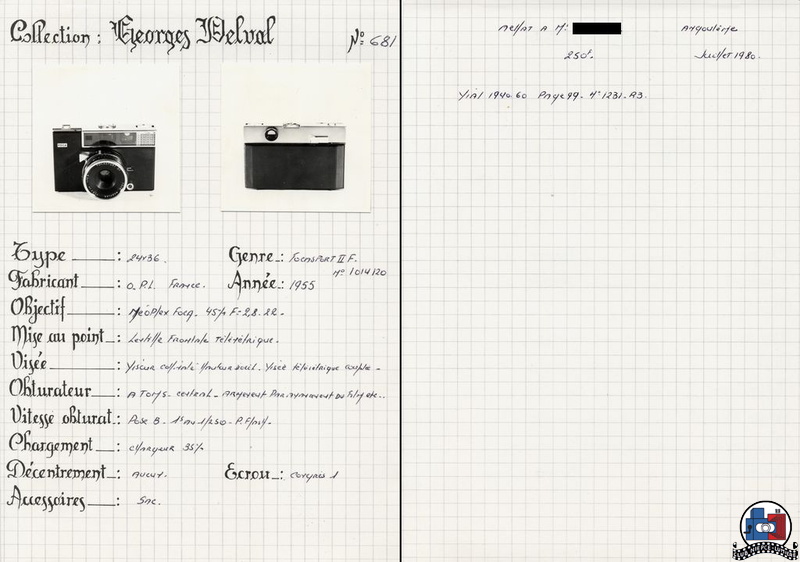 Collection : Georges Delval
N° 681
Type : 24x36.
Genre : Focasport II F.
n° 1014120
Fabricant : O.P.L. France.
Année : 1955
Objectif : Néoplex Focq. 45% F-2,8.22.
Mise au point : Lentille Frontale Télémétrique.
Visée : Viseur collimaté. Visée télémétrique couplée.
Obturateur : A Temps. central - Armement Par mouvement du Film etc..
Vitesse obturat. : Pose B. 1s au 1/250 - P. Flash.
Chargement : chargeur 35%
Décentrement : Aucun.
Ecrou : Congrès 1
Accessoires : Sac.
Achat A Mr
Angoulème
250f.
Juillet 1980.
Vial 1940.60 Page 99. N° 1231. R3.